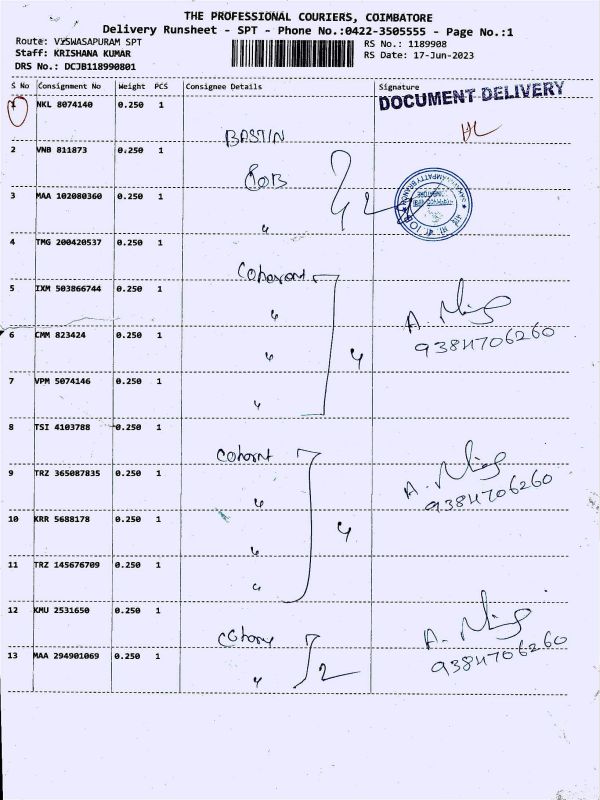 THE PROFESSIONAL COURIERS, COIMBATORE
Delivery Runsheet - SPT - Phone No.:0422-3505555 - Page No.:1
Route: VISWASAPURAM SPT
RS No.: 1189908
Staff: KRISHANA KUMAR
RS Date: 17-Jun-2023
DRS No.: DCJB118990801
S No Consignment No Weight PCS Consignee Details Signature
DOCUMENT DELIVERY
1 NKL 8074140 0.250 1
BASTIN
2 VNB 811873 0.250 1
BOB
3 MAA 102080360 0.250 1
〃 2
4 TMG 200420537 0.250 1
Coherent
5 IXM 503866744 0.250 1
〃 A.
9384706260
6 CMM 823424 0.250 1
〃 4
7 VPM 5074146 0.250 1
〃
8 TSI 4103788 0.250 1
9 TRZ 365087835 0.250 1
〃 A.
9384706260
10 KRR 5688178 0.250 1
〃 4
11 TRZ 145676709 0.250 1
〃
12 KMU 2531650 0.250 1
A.
13 MAA 294901069 0.250 1
〃 2
9384706260